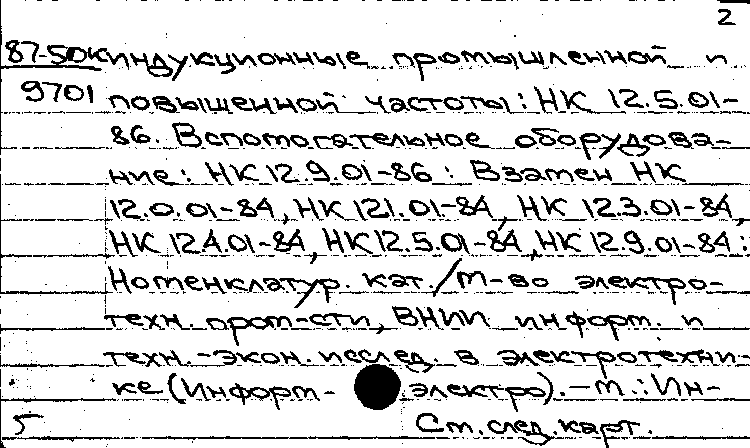 2
87-50к индукционные промышленной и
9701 повышенной частоты: НК 12.5.01-
86. Вспомогательное оборудова-
ние: НК 12.9.01-86: Взамен НК
12.0.01-84, НК 12.1.01-84, НК 12.3.01-84,
НК 12.4.01-84, НК 12.5.01-84, НК 12.9.01-84:
Номенклатур. кат./М-во электро-
техн. пром-сти, ВНИИ информ. и
техн.-экон. исслед. в электротехни-
ке (Информ- электро).-М.: Ин-
5 См. след. карт.